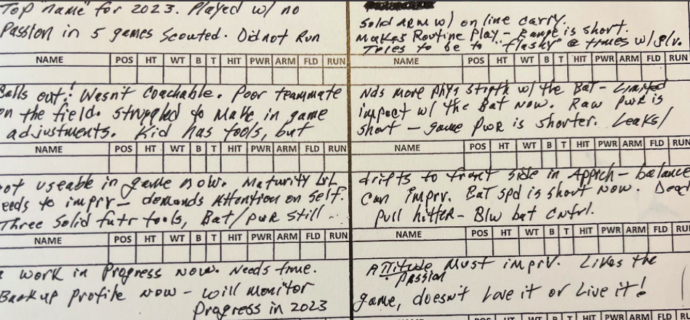 Top name for 2023. Played w/ no
Passion in 5 games scouted. Did not Run
NAME POS HT WT B T HIT PWR ARM FLD RUN
Balls out! Wasn't Coachable. Poor teammate
on the field. Struggled to Make in game
adjustments. Kid has tools, but
NAME POS HT WT B T HIT PWR ARM FLD RUN
not useable in game now. Maturity lvl
needs to imprv - demands Attention on self.
Three Solid futr tools, Bat/pwr still -
NAME POS HT WT B T HIT PWR ARM FLD RUN
a work in Progress now. Needs time.
Backup profile now - will monitor
Progress in 2023
Solid ARM w/ on line carry.
Makes Routine Play - Range is short.
Tries to be "flashy" @ times w/ glv.
NAME POS HT WT B T HIT PWR ARM FLD RU
Nds more Phys strgth w/ the Bat - Limited
impact w/ the Bat now. Raw pwr is
short - game pwr is shorter. Leaks/
NAME POS HT WT B T HIT PWR ARM FLD RU
drifts to front side in Apprch - balance
can imprv. Bat spd is short now. Dead
pull hitter - Blw bat cntrl.
NAME POS HT WT B T HIT PWR ARM FLD RU
Attitude Must imprv. Likes the
Passion
game, doesn't Love it or Live it!